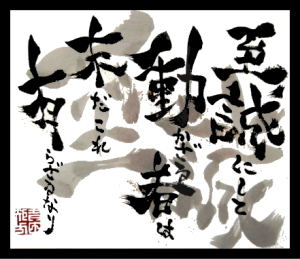 至誠にして
動かざる者は
未だこれ
有らざるなり